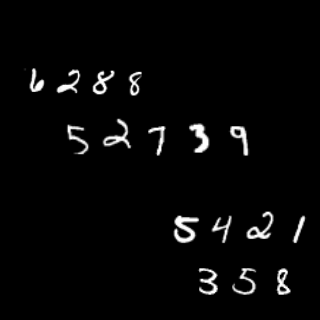 6288
52739
5421
358